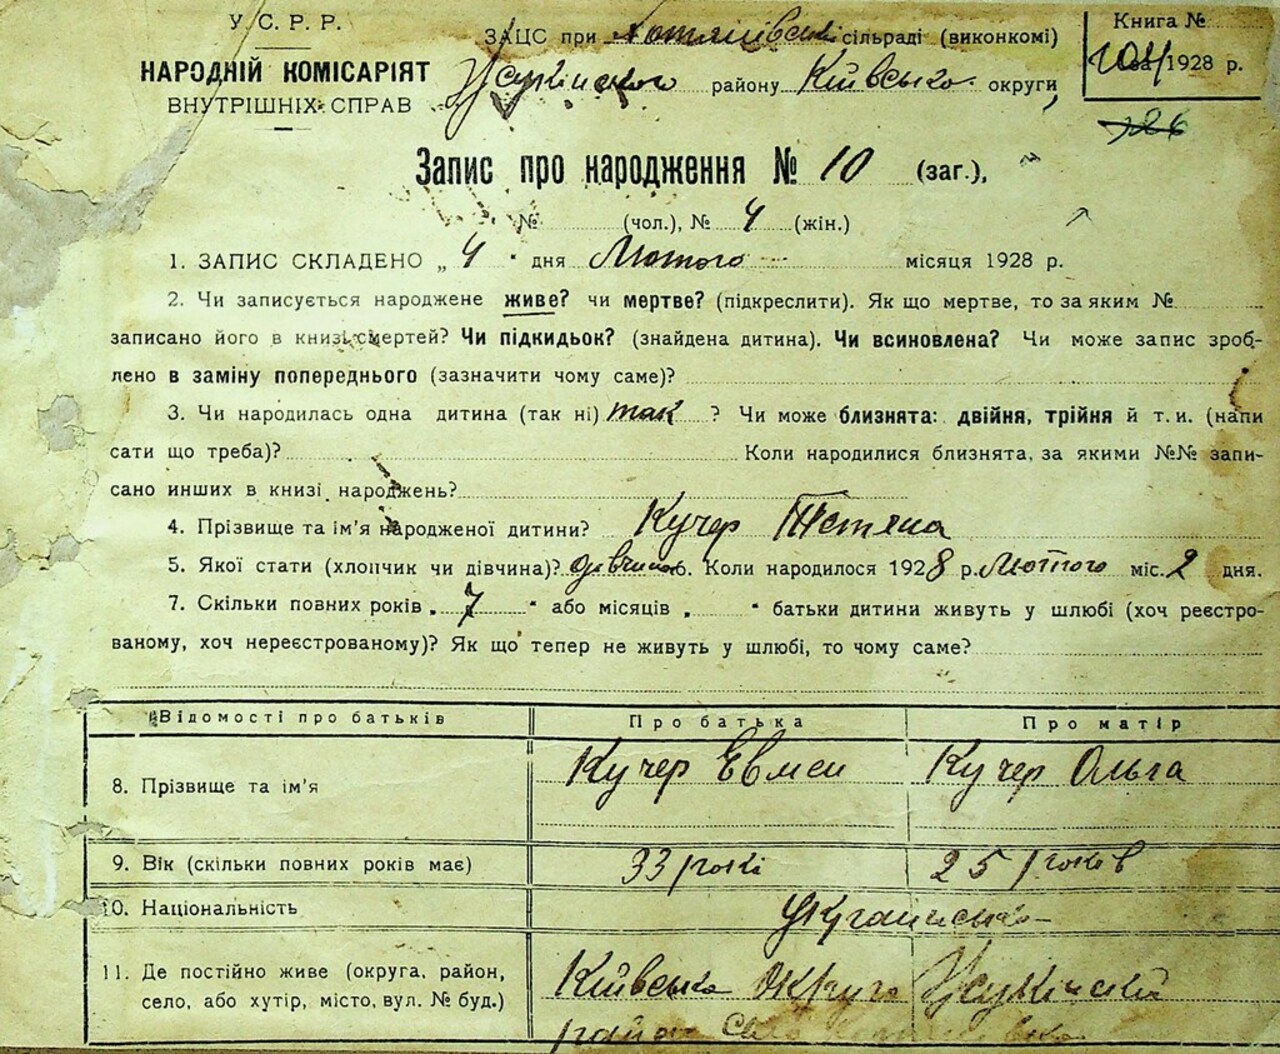 У. С. Р. Р.
НАРОДНІЙ КОМІСАРІЯТ
ВНУТРІШНІХ СПРАВ
ЗАЦС при сільраді (виконкомі)
району Київсько округи,
Книга №
104 за 1928 р.
26
Запис про народження № 10 (заг.),
№ (чол.), № 4 (жін.)
1. ЗАПИС СКЛАДЕНО „ 4 " дня Лютого місяця 1928 р.
2. Чи записується народжене живе? чи мертве? (підкреслити). Як що мертве, то за яким №
записано його в книзі смертей? Чи підкидьок? (знайдена дитина). Чи всиновлена? Чи може запис зроб-
лено в заміну попереднього (зазначити чому саме)?
3. Чи народилась одна дитина (так ні) так ? Чи може близнята: двійня, трійня й т. и. (напи
сати що треба)? Коли народилися близнята, за якими №№ запи-
сано инших в книзі народжень?
4. Прізвище та ім'я народженої дитини? Кучер Тетяна
5. Якої стати (хлопчик чи дівчина)? дівчина 6. Коли народилося 1928 р. Лютого міс. 2 дня.
7. Скільки повних років „ 7 " або місяців „ " батьки дитини живуть у шлюбі (хоч реєстро-
ваному, хоч нереєстрованому)? Як що тепер не живуть у шлюбі, то чому саме?
Відомості про батьків Про батька Про матір
8. Прізвище та ім'я Кучер Евмен Кучер Ольга
9. Вік (скільки повних років має) 33 рокі 25 років
10. Національність
11. Де постійно живе (округа, район,
село, або хутір, місто, вул. № буд.)
Київська Округа
район Село